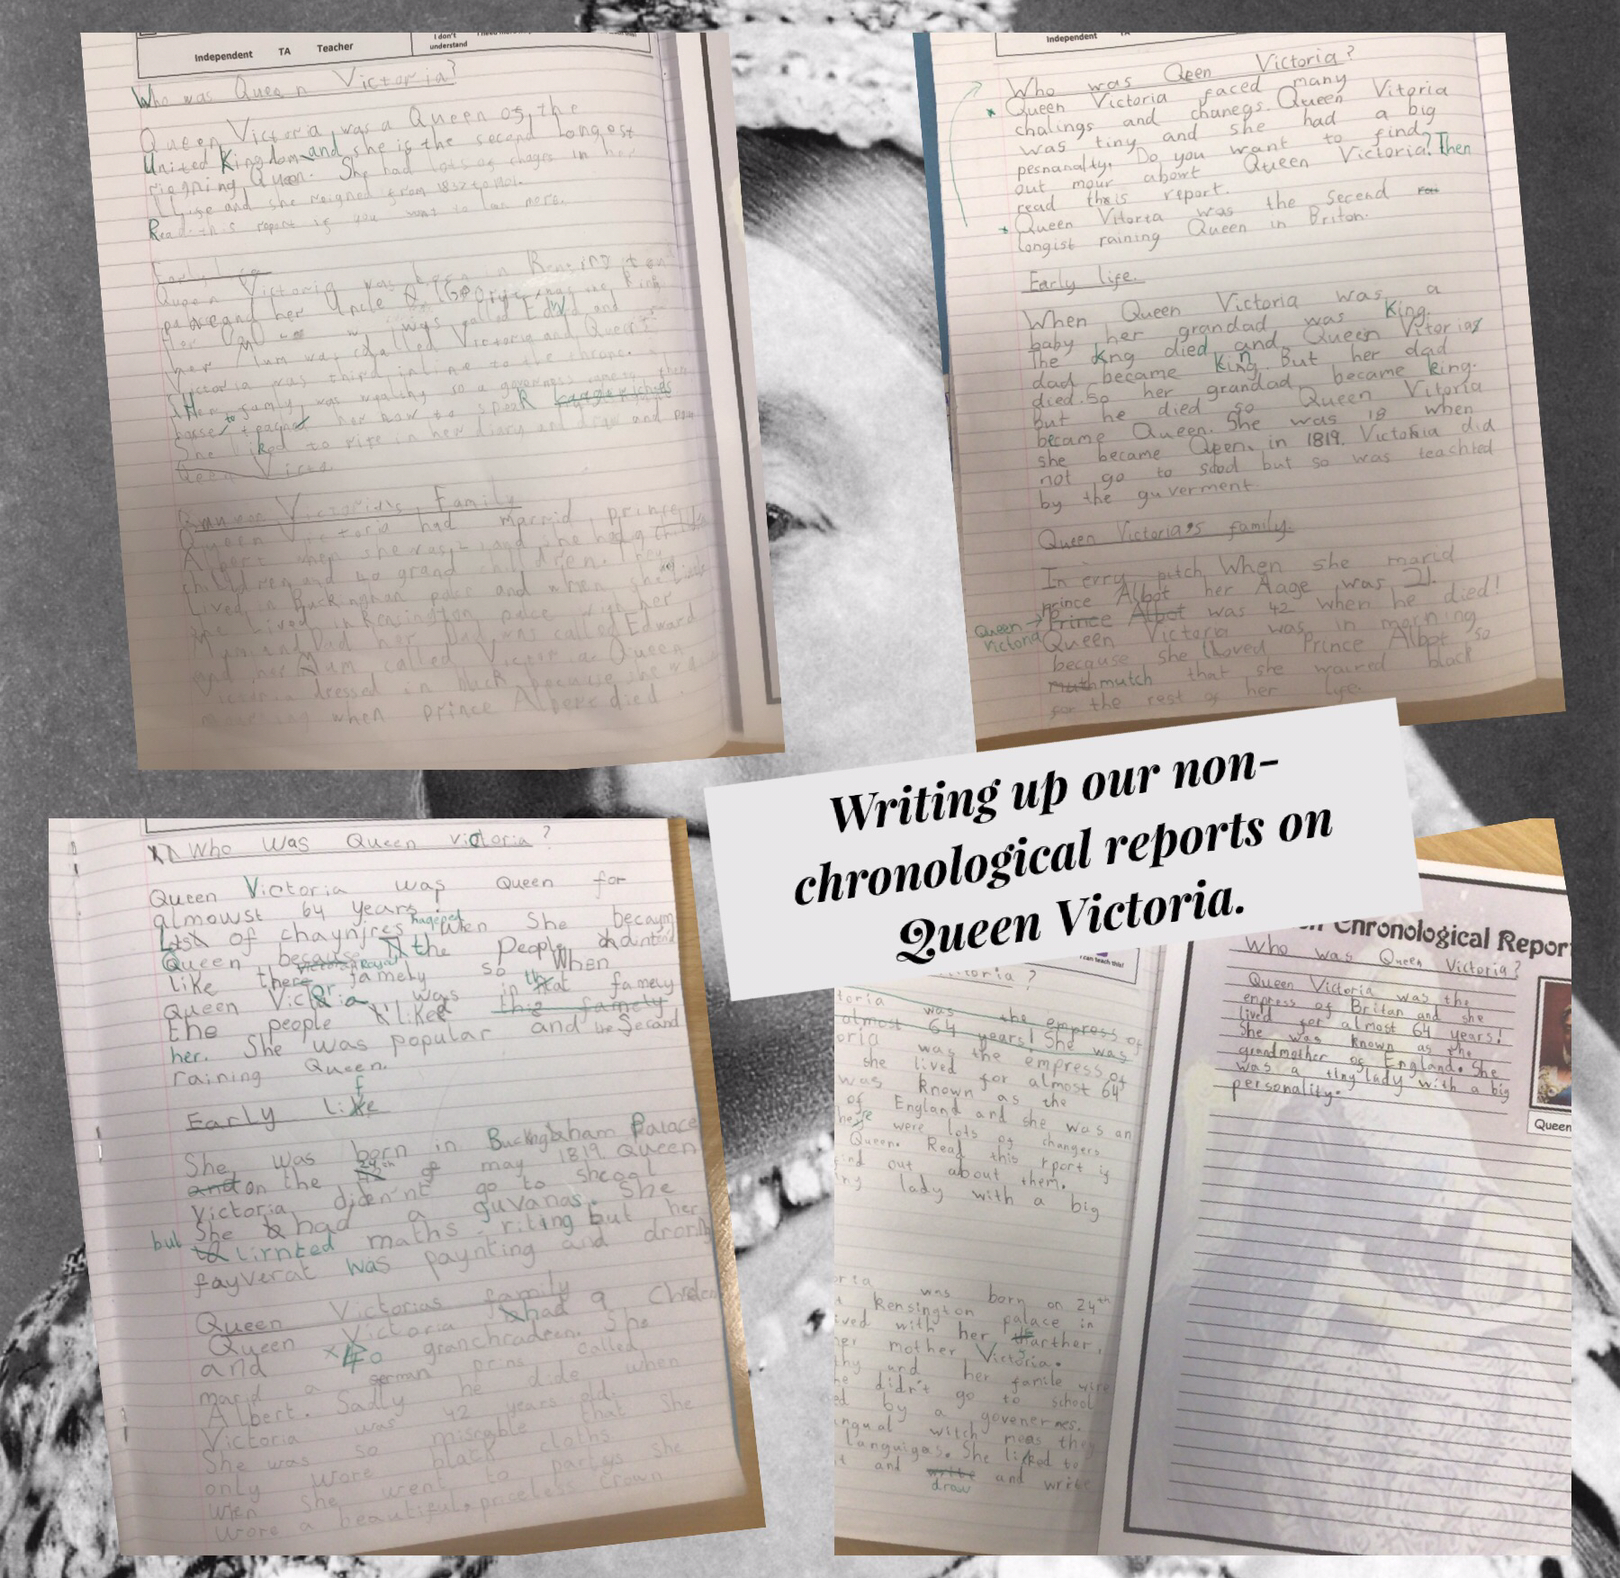 Independent TA Teacher
I don't
understand
Who was Queen Victoria?
Queen Victoria was a Queen of the
United Kingdom and she is the second longest
reigning Queen. She had lots of in her
life and she reigned from
Read this report if you want to more.
Early life
Queen Victoria was born in
and her Uncle was the King
was called and
her Mum was called Victoria and Queen
Victoria was third in line to the throne.
Her family was wealthy so a governess
her how to
She liked to in her diary and draw and
Queen
Victoria's Family
Queen Victoria had married prince
when she was and she had 9
and grand children. They
Lived in palace and when she
she lived in Kensington palace with her
Mum and Dad her Dad was called Edward
and her Mum called Victoria. Queen
dressed in because she was
when prince died
Independent
Who was Qeen Victoria?
Queen Victoria faced many
chalings and chanegs. Queen Vitoria
was tiny and she had a big
pesnanalty. Do you want to find
out mour abowt Queen Victoria? Then
read this report.
Queen Vitoria was the second
longist raining Queen in Briton.
Early life.
When Queen Victoria was a
baby her grandad was King.
The king died and Queen Vitorias
dad became King. But her dad
died. So her grandad became king.
but he died so Queen Vitoria
became Queen. She was 18 when
she became Qeen. in 1819. Victoria did
not go to but so was teachted
by the guverment
Queen Victoria's family.
In erry pitch When she marid
prince Albot her Aage was 21.
Queen Victoria
Prince Albot was 42 when he died!
Queen Victoria was in morning
because she Loved Prince Albot so
muth mutch that she waired black
for the rest of her life.
Writing up our non-
chronological reports on
Queen Victoria.
Who Was Queen victoria?
Queen Victoria was Queen for
almowst 64 years.
Lots of chaynjres hapened When She becaym
Queen because the People
like there Royal famely so When
Queen Victoria was in that famely
the people liked this famely
her. She was popular and the Second
raining Queen.
Early life
She was born in Buckingham Palace
and on the 24th of may 1819. Queen
Victoria diden'nt go to shcool
She had a guvanas. She
but lirnted maths riting but her
fayverat was paynting and
Queen Victorias family
Queen Victoria had 9
and 40 granchradeen. She
marid a german prins called
Albert. Sadly he dide when
Victoria was 42 years old.
She was so misrable that She
only wore black cloths
wen She went to partys she
wore a beautiful, priceless crown
I can teach this!
toria?
toria was the empress of
almost 64 years! She was
oria was the empress of
she lived for almost 64
was known as the
of England and she was an
were lots of changers
Queen. Read this rport if
find out about them.
ny lady with a big
ria was born on 24th
Kensington palace in
ved with her farther,
her mother Victoria.
thy and her famile wire
he didn't go to school
ed by a governernes.
ingual witch meas they
languigas. She licked to
t and write draw and write
Chronological Repor
Who was Queen Victoria?
Queen Victoria was the
enpress of Britan and she
lived for almost 64 years!
She was known as the
grandmother of England. She
was a tiny lady with a big
personality.
Queen